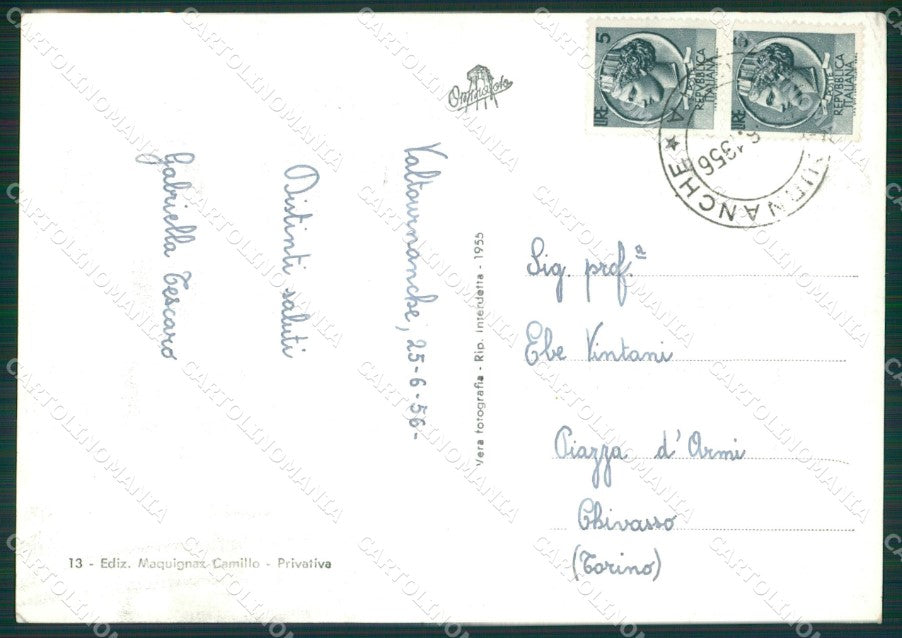 Valtournanche, 25-6-56-
Distinti saluti
Gabriella Tescaro
13 - Ediz. Maquignaz Camillo - Privativa
Vera fotografia - Rip. interdetta - 1955
LIRE 5
POSTE
REPVBBLICA
ITALIANA
LIRE 5
POSTE
REPVBBLICA
ITALIANA
Sig. prof.ª
Ebe Vintani
Piazza d'Armi
Chivasso
(Torino)
CARTOLINOMANIA